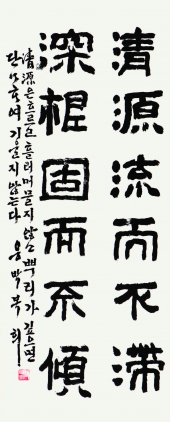 清源流而不滯
深根固而不傾
清源은 흐르고 흘러 머물지 않소 뿌리가 깊으면
단단하여 기울지 않는다 박복희